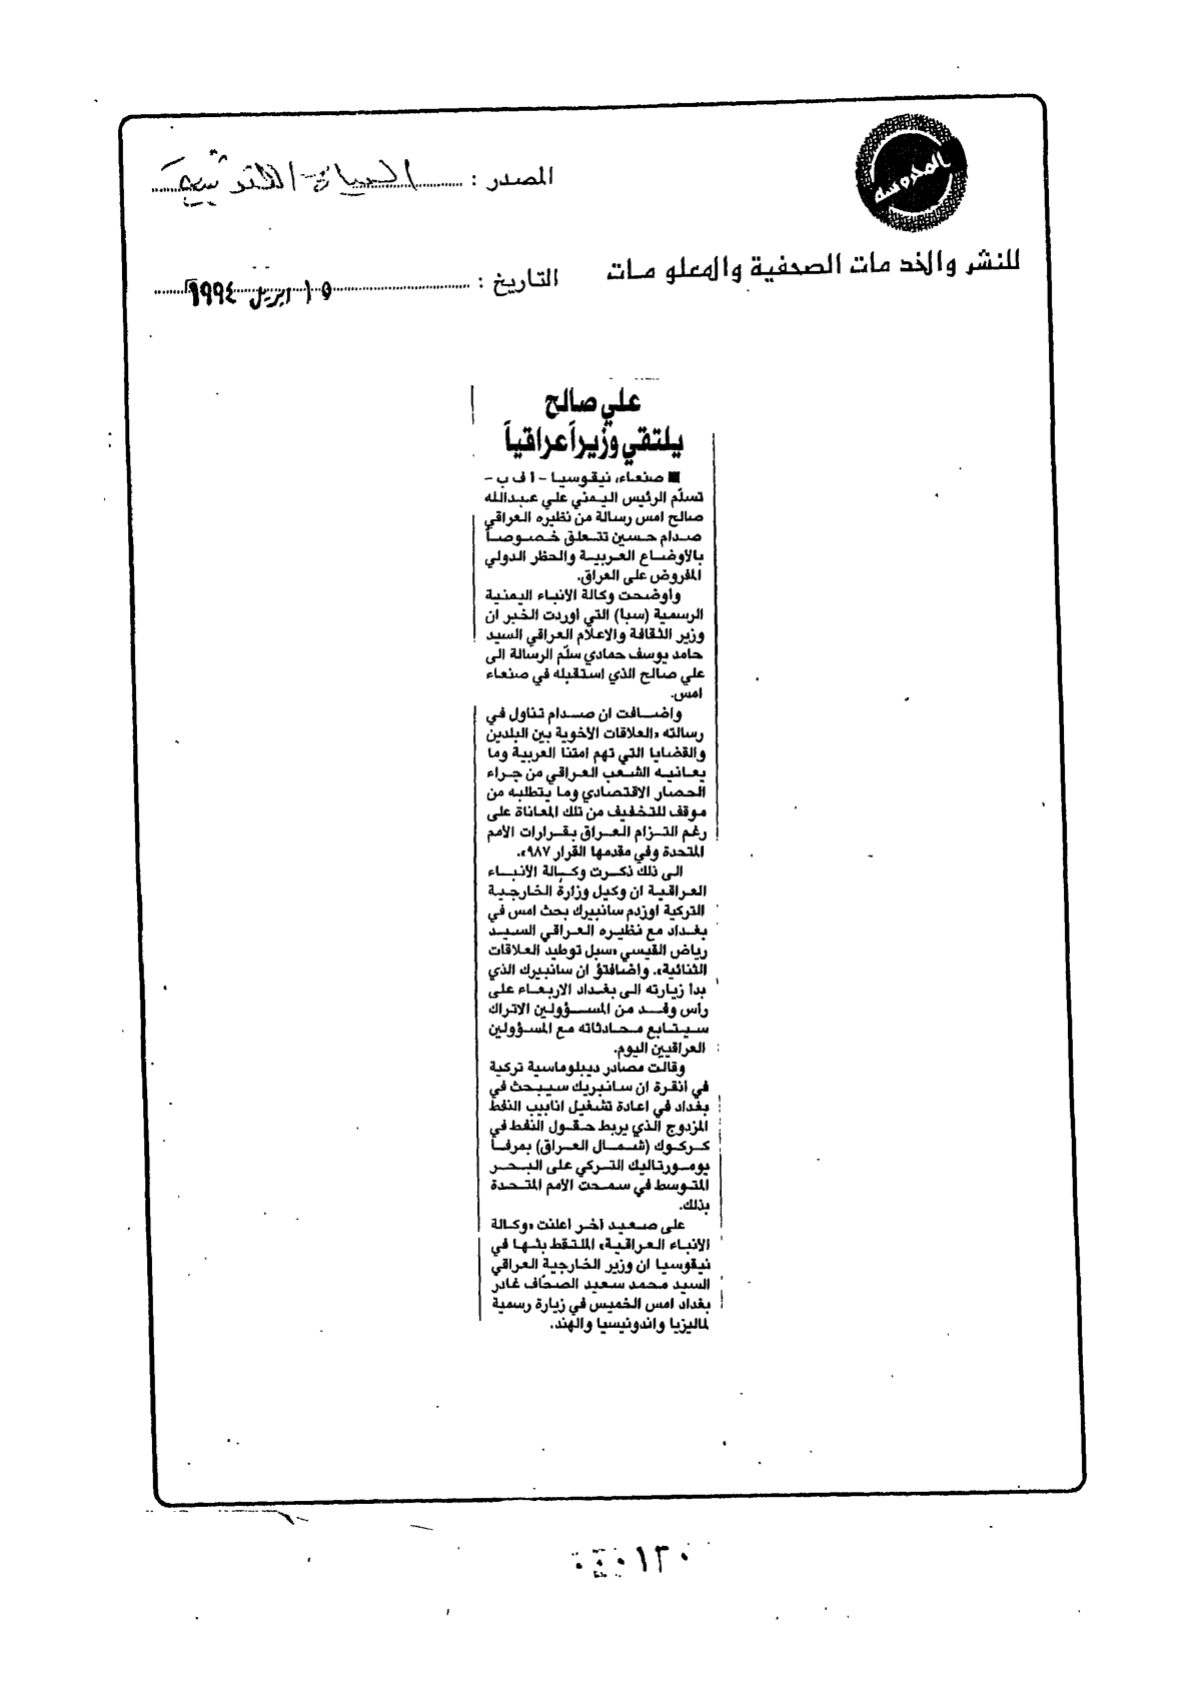 المحروسة
المصدر : الحياة اللندنية
للنشر والخدمات الصحفية والمعلومات
التاريخ : ١٥ ابريل ١٩٩٤
علي صالح
يلتقي وزيراً عراقياً
■ صنعاء، نيقوسيا - ا ف ب -
تسلّم الرئيس اليمني علي عبدالله
صالح امس رسالة من نظيره العراقي
صدام حسين تتعلق خصوصاً
بالأوضاع العربية والحظر الدولي
المفروض على العراق.
وأوضحت وكالة الانباء اليمنية
الرسمية (سبا) التي اوردت الخبر ان
وزير الثقافة والاعلام العراقي السيد
حامد يوسف حمادي سلّم الرسالة الى
علي صالح الذي استقبله في صنعاء
امس.
واضافت ان صدام تناول في
رسالته «العلاقات الاخوية بين البلدين
والقضايا التي تهم امتنا العربية وما
يعانيه الشعب العراقي من جراء
الحصار الاقتصادي وما يتطلبه من
موقف للتخفيف من تلك المعاناة على
رغم التزام العراق بقرارات الأمم
المتحدة وفي مقدمها القرار ٩٨٧».
الى ذلك ذكرت وكالة الانباء
العراقية ان وكيل وزارة الخارجية
التركية اوزدم سانبيرك بحث امس في
بغداد مع نظيره العراقي السيد
رياض القيسي «سبل توطيد العلاقات
الثنائية». واضافتؤ ان سانبيرك الذي
بدأ زيارته الى بغداد الاربعاء على
رأس وفد من المسؤولين الاتراك
سيتابع محادثاته مع المسؤولين
العراقيين اليوم.
وقالت مصادر ديبلوماسية تركية
في انقرة ان سانبريك سيبحث في
بغداد في اعادة تشغيل انابيب النفط
المزدوج الذي يربط حقول النفط في
كركوك (شمال العراق) بمرفأ
يومورتاليك التركي على البحر
المتوسط في سمحت الأمم المتحدة
بذلك.
على صعيد آخر أعلنت «وكالة
الانباء العراقية» الملتقط بثها في
نيقوسيا ان وزير الخارجية العراقي
السيد محمد سعيد الصحّاف غادر
بغداد امس الخميس في زيارة رسمية
لماليزيا واندونيسيا والهند.